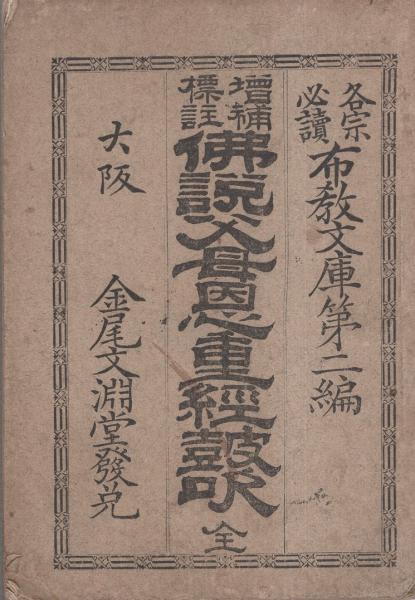 各宗必讀 布教文庫第二編
增補標註 佛說父母恩重經鼓吹 全
大阪 金尾文淵堂發兌